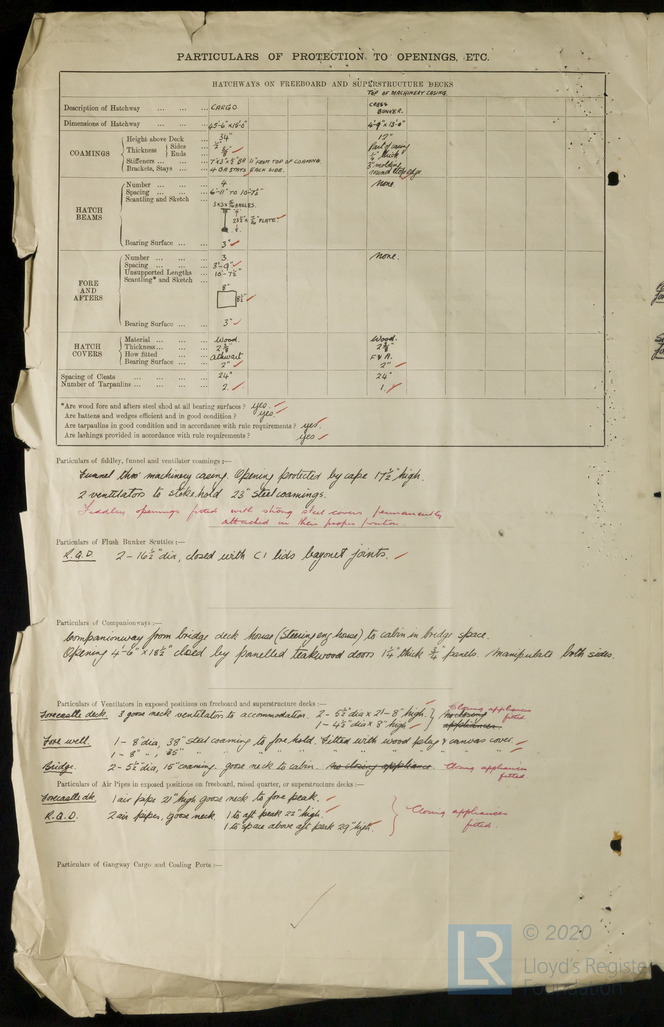 PARTICULARS OF PROTECTION TO OPENINGS, ETC.
HATCHWAYS ON FREEBOARD AND SUPERSTRUCTURE DECKS
TOP OF MACHINERY CASING.
Description of Hatchway ... ... ... CARGO CROSS BUNKER.
Dimensions of Hatchway ... ... ... 45'-6" x 16'-0" 4'-9" x 13'-0"
COAMINGS
Height above Deck ... 34" 17"
Thickness Sides Part of casing
Ends
Stiffeners ... 11" FROM TOP OF COAMING.
Brackets, Stays ... 4 BA STAYS EACH SIDE. round top edge
HATCH BEAMS
Number ... ... ... 4 None.
Spacing ... ... ... 6'-11" TO 10'-7½"
Scantling and Sketch ... ANGLES.
PLATE.
Bearing Surface ... ... 3"
FORE AND AFTERS
Number ... ... ... 3 None.
Spacing ... ... ... 3'-9"
Unsupported Lengths ... 10'-7½"
Scantling* and Sketch ...
8"
8½"
Bearing Surface ... ... 3"
HATCH COVERS
Material ... ... ... Wood. Wood.
Thickness ... ... ...
How fitted ... ... athwart F & A.
Bearing Surface ... ... 2" 2"
Spacing of Cleats ... ... ... 24" 24"
Number of Tarpaulins ... ... ... 2. 1.
*Are wood fore and afters steel shod at all bearing surfaces? yes.
Are battens and wedges efficient and in good condition? yes.
Are tarpaulins in good condition and in accordance with rule requirements? yes.
Are lashings provided in accordance with rule requirements? yes
Particulars of fiddley, funnel and ventilator coamings:—
Funnel thro' machinery casing. Opening protected by cape 17½" high.
2 ventilators to stokehold 23" steel coamings.
Fiddley openings fitted with strong steel covers permanently
attached in their proper position.
Particulars of Flush Bunker Scuttles:—
R.Q.D. 2 – 16½" dia, closed with C I lids bayonet joints.
Particulars of Companionways:—
Companionway from bridge deck house (Steering eng house) to cabin in bridge space.
Opening 4'-6" x 18½" closed by panelled teakwood doors 1¼" thick ¾" panels. Manipulate both sides.
Particulars of Ventilators in exposed positions on freeboard and superstructure decks:—
Forecastle deck. 3 goose neck ventilators to accommodation. 2 – 5½" dia x 21 – 8" high. No closing appliances. Closing appliances fitted.
1 – 4½" dia x 8" high
Fore well. 1 – 8" dia, 38" steel coaming to fore hold. Fitted with wood plug & canvas cover.
1 – 8" " 35" " " " " " " "
Bridge. 2 – 5½" dia, 15" coaming. goose neck to cabin. No closing appliance. Closing appliances fitted
Particulars of Air Pipes in exposed positions on freeboard, raised quarter, or superstructure decks:—
Forecastle dk. 1 air pipe 21" high goose neck to fore peak.
R.Q.D. 2 air pipes, goose neck. 1 to aft peak 22" high. Closing appliances fitted.
1 to space above aft peak 29" high.
Particulars of Gangway Cargo and Coaling Ports:—
LR © 2020
Lloyd's Register
Foundation